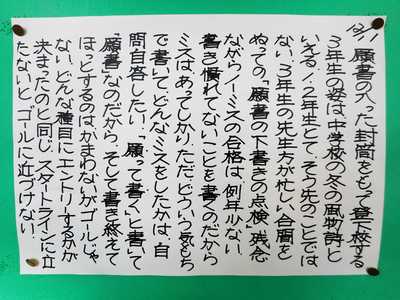 12/1
願書の入った封筒をもって登下校する
3年生の姿は中学校の冬の風物詩と
いえる！2年生とて、そう先のことでは
ない。3年生の先生方が忙しい合間を
ぬっての「願書の下書きの点検」残念
ながらノーミスの合格は例年少ない。
書き慣れてないことを書くのだから
ミスは、あってしかり。ただどういう気もち
で書いて、どんなミスをしたかは、自
問自答したい。「願って書く」と書いて
「願書」なのだから。そして書き終えて
ほっとするのはかまわないがゴールじゃ
ない。どんな種目にエントリーするかが
決まったのと同じ。スタートラインに立
たないと、ゴールに近づけない。